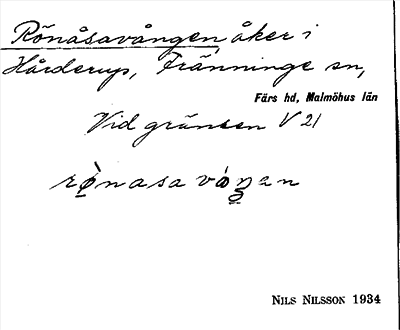 Rönåsavången, åker i
Hårderup, Tränninge sn,
Färs hd, Malmöhus län
Vid gränsen V 21
rø̀nasa vóŋan
NILS NILSSON 1934